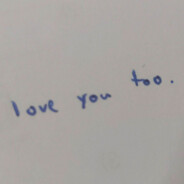 love you too.